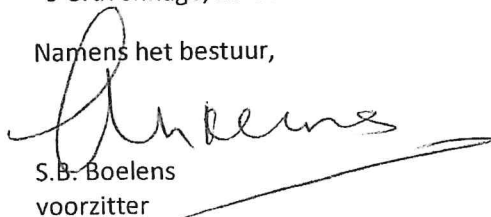 Namens het bestuur,
S.B. Boelens
voorzitter